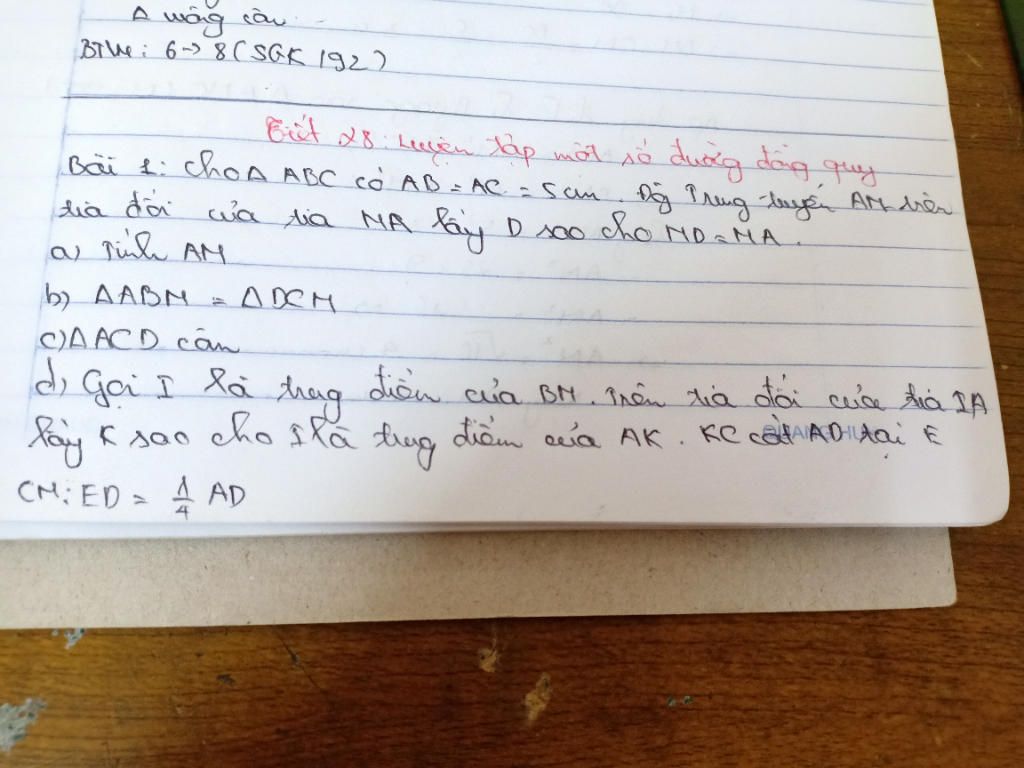 Δ vuông cân.
BTVN: 6->8 (SGK 192)
Tiết 28: Luyện tập một số đường đồng quy
Bài 1: Cho Δ ABC có AB = AC = 5cm. Độ Trung tuyến AM trên
tia đối của tia MA lấy D sao cho MD = MA.
a) Tính AM
b) ΔABM = ΔDCM
c) ΔACD cân
d) Gọi I là trung điểm của BM. Trên tia đối của tia IA
lấy K sao cho I là trung điểm của AK. KC cắt AD tại E
CM: ED = 1/4 AD